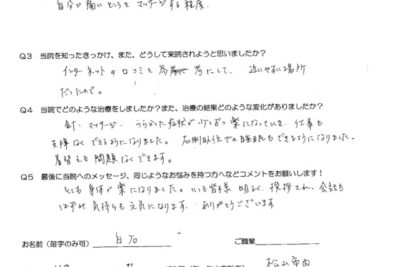 自分が痛いところをマッサージする程度.
Q3 当院を知ったきっかけ、また、どうして来院されようと思いましたか?
インターネットの口コミを参考にして、通いやすい場所
だったので。
Q4 当院でどのような治療をしましたか?また、治療の結果どのような変化がありましたか?
針・マッサージ・ つらかった症状が少しずつ楽になっていき、仕事も
支障なくできるようになりました。右側臥位での睡眠もできるようになりました。
着替えも問題なくできます。
Q5 最後に当院へのメッセージ、同じようなお悩みを持つ方へなどコメントをお願いします!
とても身体が楽になりました。いつも皆様 明るく、挨拶され、会話も
はずみ 気持ちも元気になります. ありがとうございます
お名前(苗字のみ可) 白石 ご職業
松山市内